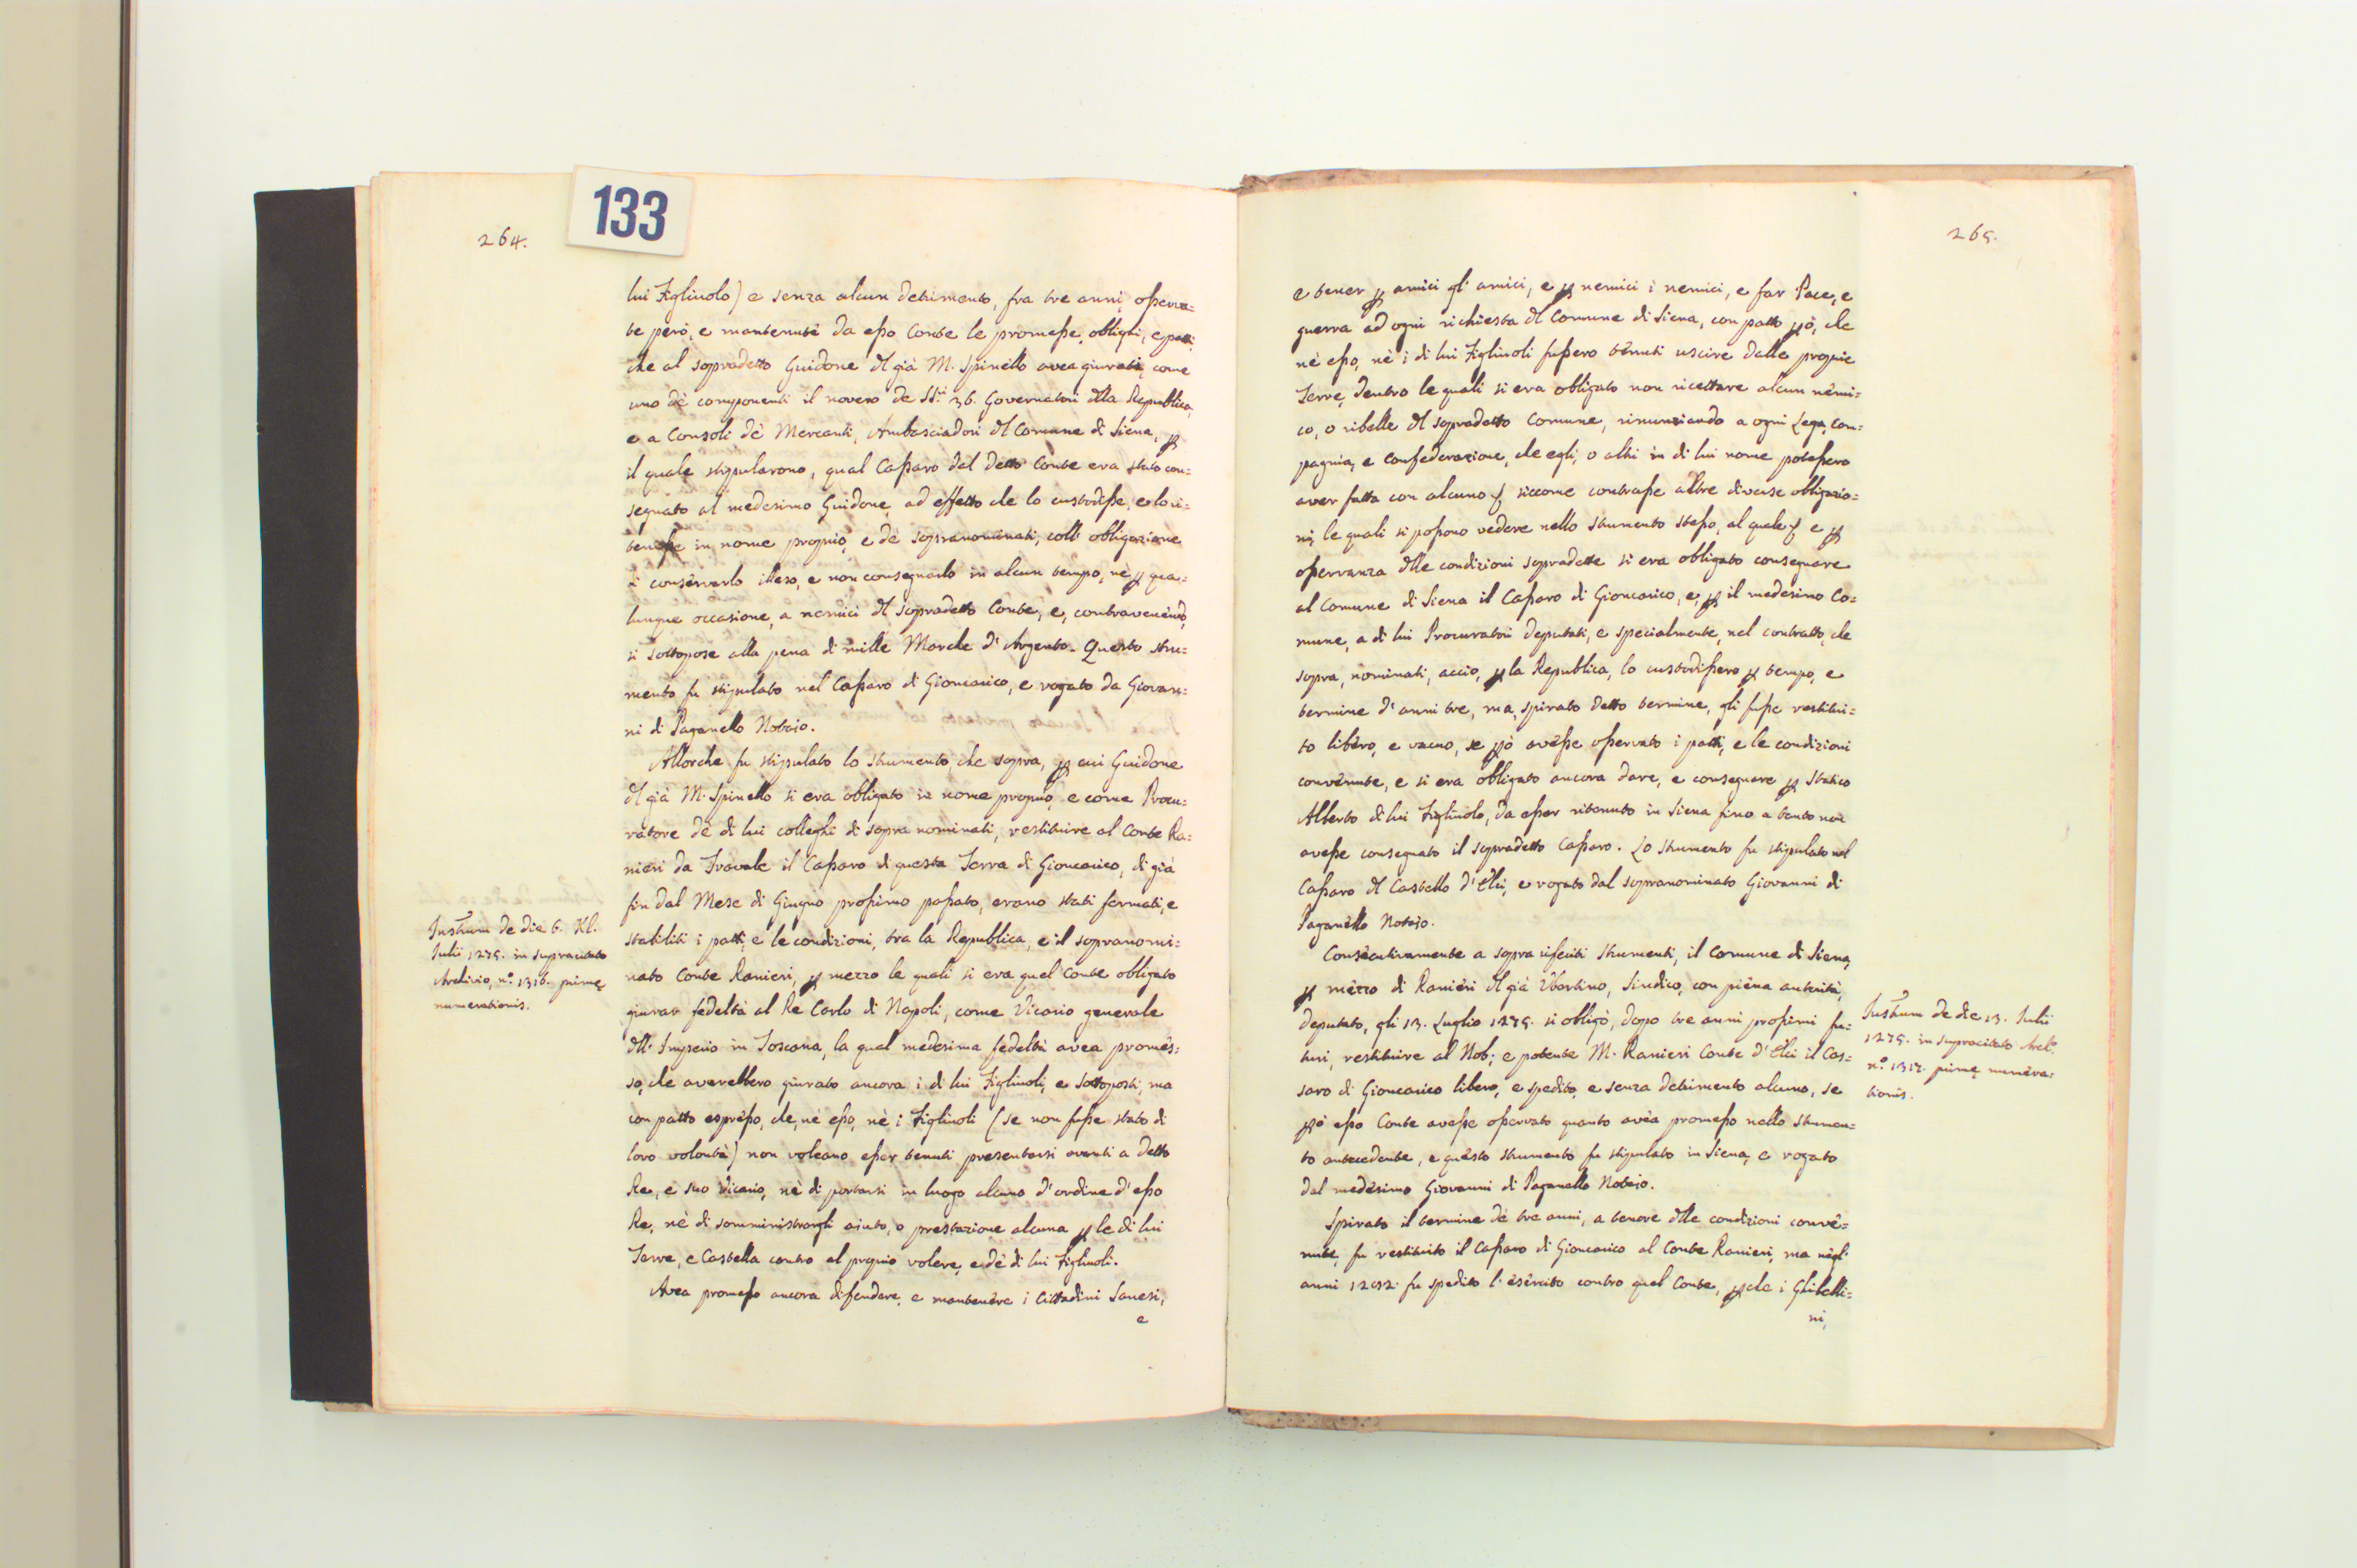 133
264.
lui Figliuolo) e senza alcun detrimento, fra tre anni, osserva=
te però, e mantenute da esso Conte le promesse, oblighi, e patti
che al sopradetto Guidone dl già M. Spinello avea giurati, come
uno de componenti il novero de SS.ri 36. Governatori dlla Republica,
e a Consoli dè Mercanti, Ambasciadori dl Comune di Siena, p
il quale stipularono, qual Cassaro dal detto Conte era stato con=
segnato al medesimo Guidone, ad effetto che lo custodisse, e lo ri=
tenesse in nome proprio, e dè sopranominati, coll' obligazione
di conservarlo illeso, e non consegnarlo in alcun tempo, nè p qua=
lunque occasione, a nemici dl sopradetto Conte, e, contravenendo,
si sottopose alla pena di mille Marche d' Argento. Questo stru=
mento fu stipulato nel Cassaro di Gioncarico, e rogato da Giovan=
ni di Paganello Notaio.
Allorche fu stipulato lo strumento che sopra, p cui Guidone
dl già M. Spinello si era obligato in nome proprio, e come Procu=
ratore dè di lui colleghi di sopra nominati, restituire al Conte Ra=
nieri da Travale il Cassaro di questa Terra di Gioncarico, di già
fin dal Mese di Giugno prossimo passato, erano stati fermati, e
stabiliti i patti, e le condizioni, tra la Republica, e il sopranomi=
nato Conte Ranieri, p mezzo le quali si era quel Conte obligato
giurar fedeltà al Re Carlo di Napoli, come Vicario generale
dll' Imperio in Toscana, la qual medesima fedeltà avea promes=
so, che averebbero giurato ancora i di lui Figliuoli, e sottoposti, ma
con patto espresso, che, nè esso, nè i Figliuoli (se non fusse stato di
loro volontà) non voleano esser tenuti presentarsi avanti a detto
Re, e suo Vicario, nè di portarsi in luogo alcuno d' ordine d' esso
Re, nè di somministrargli aiuto, o prestazione alcuna p le di lui
Terre, e Castella contro al proprio volere, e dè di lui Figliuoli.
Avea promesso ancora difendere, e mantenere i Cittadini Sanesi,
e
Instrum de die 6. Kl.
Iulii 1275. in supracitato
Archivio, n.o 1316. primę
numerationis.
265.
e tener p amici gl' amici, e p nemici i nemici, e far Pace, e
guerra ad ogni richiesta dl Comune di Siena, con patto pò, che
nè esso, nè i di lui Figliuoli fussero tenuti uscire dalle proprie
Terre, dentro le quali si era obligato non ricettare alcun nemi=
co, o ribelle dl sopradetto Comune, rinunziando a ogni Lega, com=
pagnia, e confederazione, che egli, o altri in di lui nome potessero
aver fatta con alcuno, siccome contrasse altre diverse obligazio=
ni, le quali si possono vedere nello strumento stesso, al quale, e p
osservanza dlle condizioni sopradette si era obligato consegnare
al Comune di Siena il Cassaro di Gioncarico, e, p il medesimo Co=
mune, a di lui Procuratori deputati, e specialmente, nel contratto, che
sopra, nominati, acciò, p la Republica, lo custodissero p tempo, e
termine d' anni tre, ma, spirato detto termine, gli fusse restitui=
to libero, e vacuo, se pò avesse osservato i patti, e le condizioni
convenute, e si era obligato ancora dare, e consegnare p Statico
Alberto di lui Figliuolo, da esser ritenuto in Siena fino a tanto non
avesse consegnato il sopradetto Cassaro. Lo strumento fu stipulato nel
Cassaro dl Castello d' Elci, e rogato dal sopranominato Giovanni di
Paganello Notaio.
Consecutivamente a sopra riferiti strumenti, il Comune di Siena,
p mezzo di Ranieri dl già Ubertino, Sindico, con piena autorità,
deputato, gli 13. Luglio 1275. si obligò, dopo tre anni prossimi fu=
turi, restituire al Nob; e potente M. Ranieri Conte d' Elci il Cas=
saro di Gioncarico libero, e spedito, e senza detrimento alcuno, se
pò esso Conte avesse osservato quanto avea promesso nello strumen=
to antecedente, e questo strumento fu stipulato in Siena, e rogato
dal medesimo Giovanni di Paganello Notaio.
Spirato il termine dè tre anni, a tenore dlle condizioni conve=
nute, fu restituito il Cassaro di Gioncarico al Conte Ranieri, ma negl'
anni 1292. fu spedito l' esercito contro quel Conte, p che i Ghibelli=
ni,
Instrum de die 13. Iulii
1275. in supracitato Arch.o
n.o 1317. primę numera=
tionis.